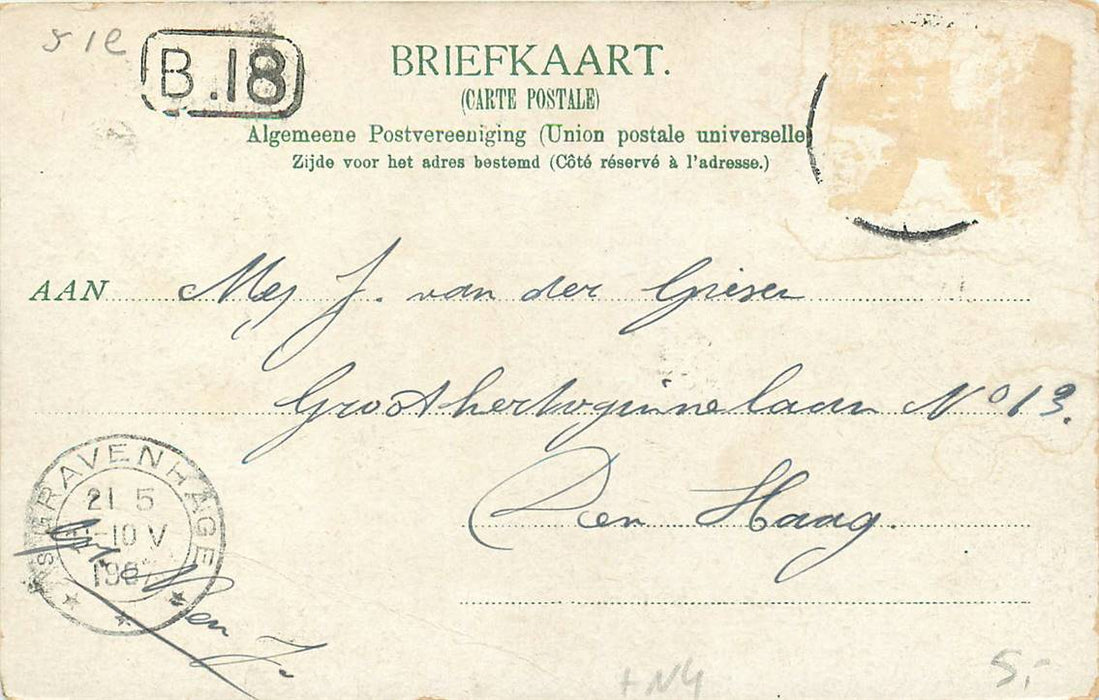 5 1e
B.18
BRIEFKAART.
(CARTE POSTALE)
Algemeene Postvereeniging (Union postale universelle
Zijde voor het adres bestemd (Côté réservé à l'adresse.)
AAN Mej J. van der Griesen
Groothertoginnelaan No 13.
Den Haag.
'S GRAVENHAGE
21 5
-10 V
1907
en J.
+N4
5,-